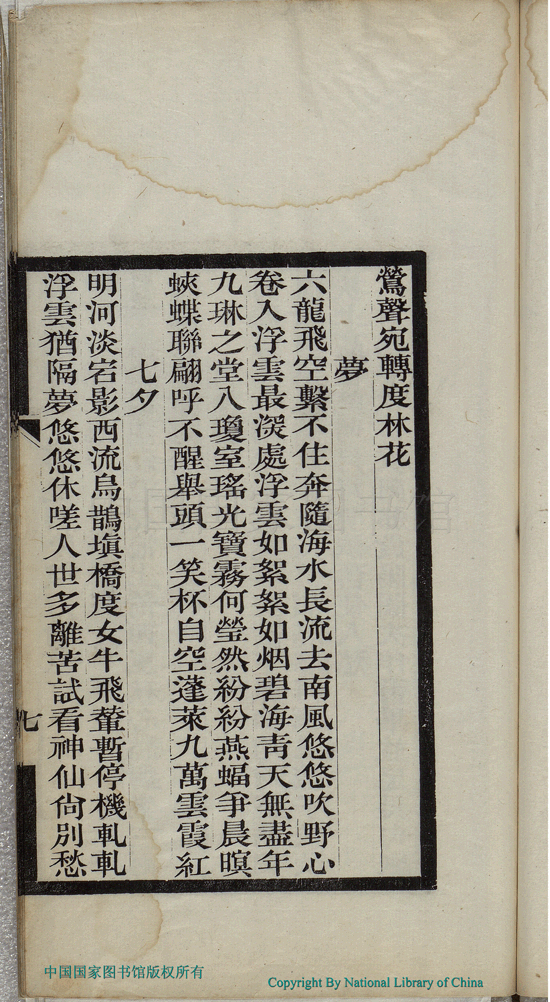 鶯聲宛轉度林花
夢
六龍飛空繫不住奔隨海水長流去南風悠悠吹野心
卷入浮雲最深處浮雲如絮絮如烟碧海靑天無盡年
九琳之堂八瓊室瑤光寶霧何瑩然紛紛燕蝠爭晨暝
蛺蝶聯翩呼不醒舉頭一笑杯自空蓬萊九萬雲霞紅
七夕
明河淡宕影西流烏鵲塡橋度女牛飛輦暫停機軋軋
浮雲猶隔夢悠悠休嗟人世多離苦試看神仙尙別愁
七
中国国家图书馆版权所有
Copyright By National Library of China